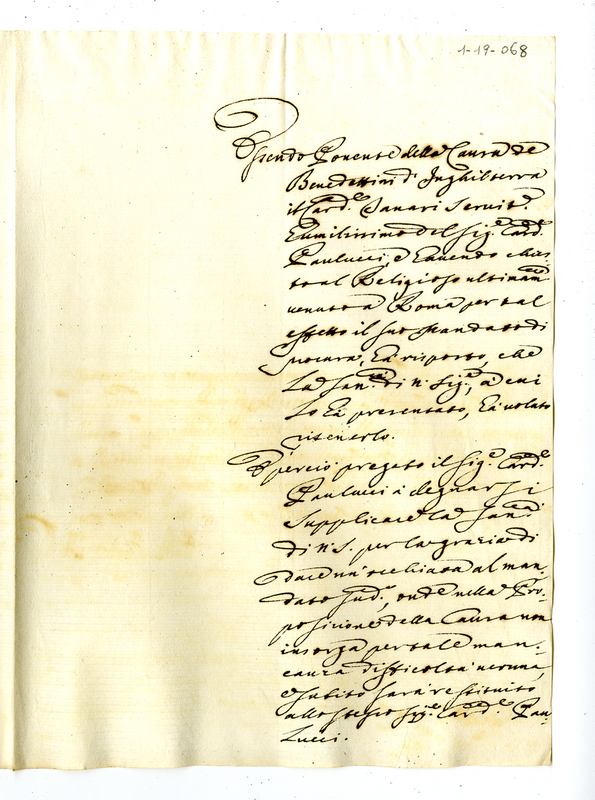 1-19-068
Essendo Ponente della Causa de
Benedettini d'Inghilterra
il Card.e Sanari Servit.e
Humilissimo del Sig.r Card.e
Paulucci, e havendo chies
to al Religioso ultimam.te
venuto a Roma per tal
effetto il suo mandato di
procura, hà risposto, che
La San.tà di N. Sig.re, à cui
Lo hà presentato, hà voluto
ritenerlo.
È perciò pregato il Sig.r Card.e
Paulucci à degnarsi
Supplicare la San.tà
di N. S. per la grazia di
dare un'occhiata al man-
dato sud.o, onde nella Pro-
posizione della Causa non
insorga per tale man-
canza difficoltà veruna,
e subito sarà restituito
allo stesso Sig.r Card.e Pau-
Lucci.